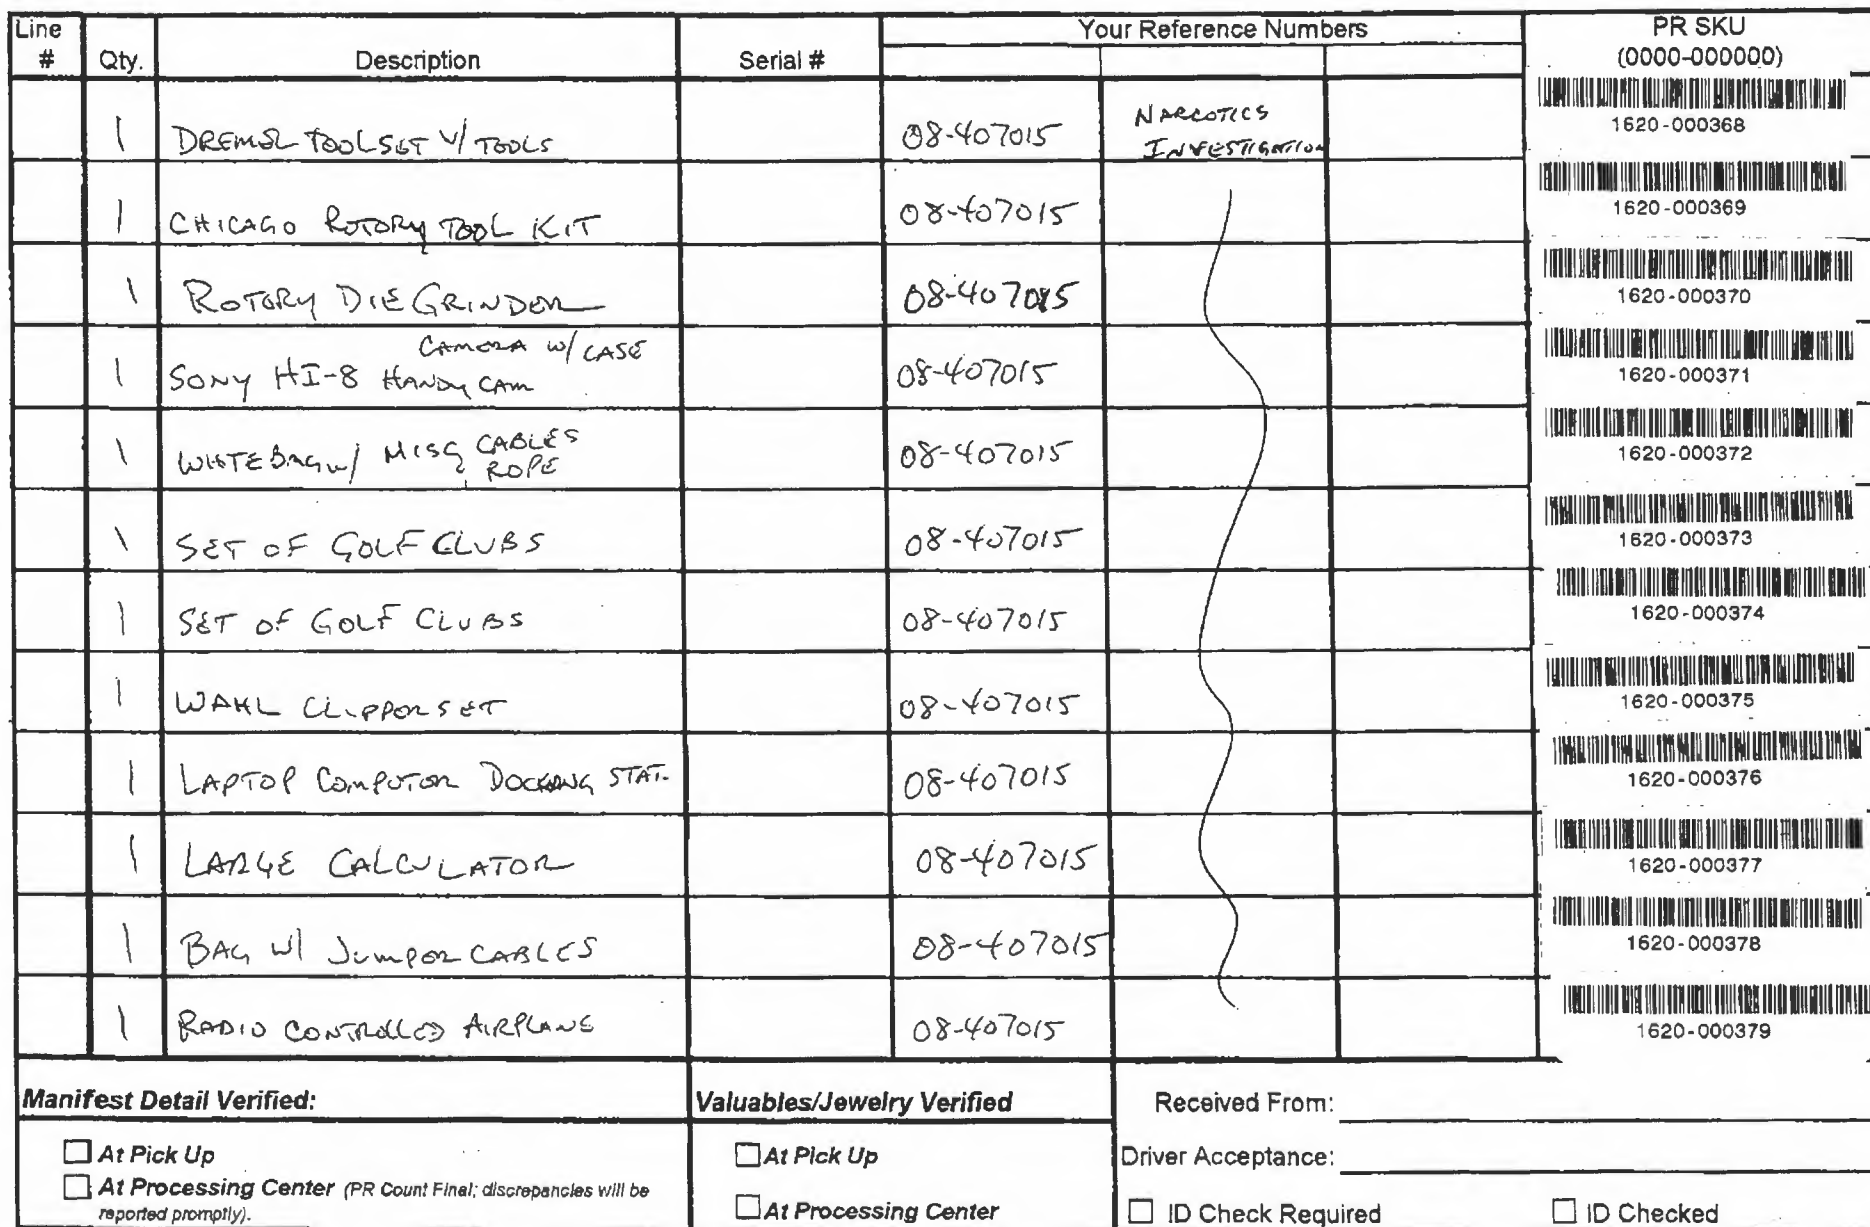 Line # Qty. Description Serial # Your Reference Numbers PR SKU (0000-000000)
1 DREMEL TOOLSET W/ TOOLS 08-407015 NARCOTICS INVESTIGATION 1620-000368
1 CHICAGO ROTORY TOOL KIT 08-407015 1620-000369
1 ROTORY DIE GRINDER 08-407015 1620-000370
1 SONY HI-8 HANDYCAM CAMERA W/ CASE 08-407015 1620-000371
1 WHITE BAG W/ MISC CABLES ROPE 08-407015 1620-000372
1 SET OF GOLF CLUBS 08-407015 1620-000373
1 SET OF GOLF CLUBS 08-407015 1620-000374
1 WAHL CLIPPER SET 08-407015 1620-000375
1 LAPTOP COMPUTER DOCKING STAT. 08-407015 1620-000376
1 LARGE CALCULATOR 08-407015 1620-000377
1 BAG W/ JUMPER CABLES 08-407015 1620-000378
1 RADIO CONTROLLED AIRPLANE 08-407015 1620-000379
Manifest Detail Verified: Valuables/Jewelry Verified Received From:
At Pick Up At Pick Up Driver Acceptance:
At Processing Center (PR Count Final; discrepancies will be reported promptly). At Processing Center ID Check Required ID Checked